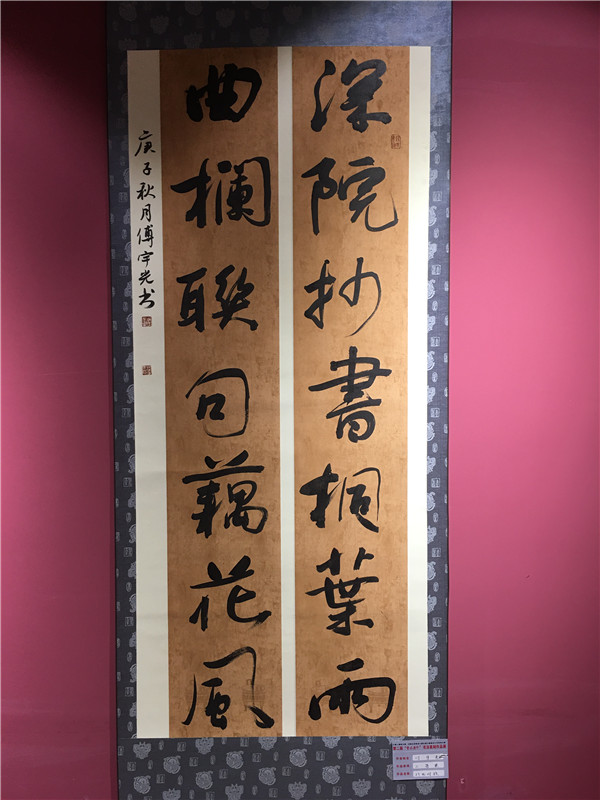 深院抄書桐葉雨
曲欄聯句藕花風
庚子秋月傅宇光书